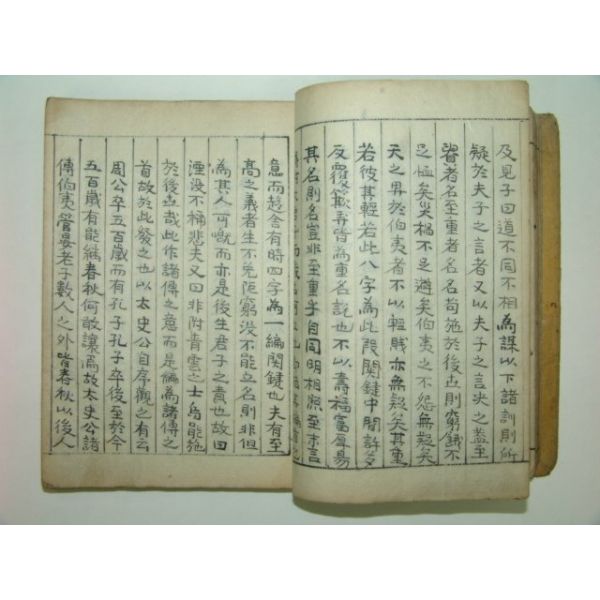 及見子曰道不同不相為謀以下諸訓則所
疑於夫子之言者又以夫子之言決之盖至
著者名至重者名名苟施於後世則窮餓不
足恤矣災禍不足避矣伯夷之不怨無疑矣
天之畀於伯夷者不以輕賤亦無疑矣其重
若彼其輕若此八字為此段関鍵中間許多
反覆欷弄皆為重名說也不以壽福富厚易
其名則名豈非至重乎自同明相照至末言
意而趍舍有時四字為一編関鍵也夫有至
高之義者生不免阨窮没不能立名則非但
為其人可嘅而亦是後生君子之責也故曰
湮没不稱悲夫又曰非附青雲之士烏能施
於後世哉此作諸傳之意而是編為諸傳之
首故於此發之也以太史公自序觀之有云
周公卒五百歲而有孔子孔子卒後至於今
五百歲有能継春秋何敢讓焉故太史公諸
傳伯夷管晏老子數人之外皆春秋以後人